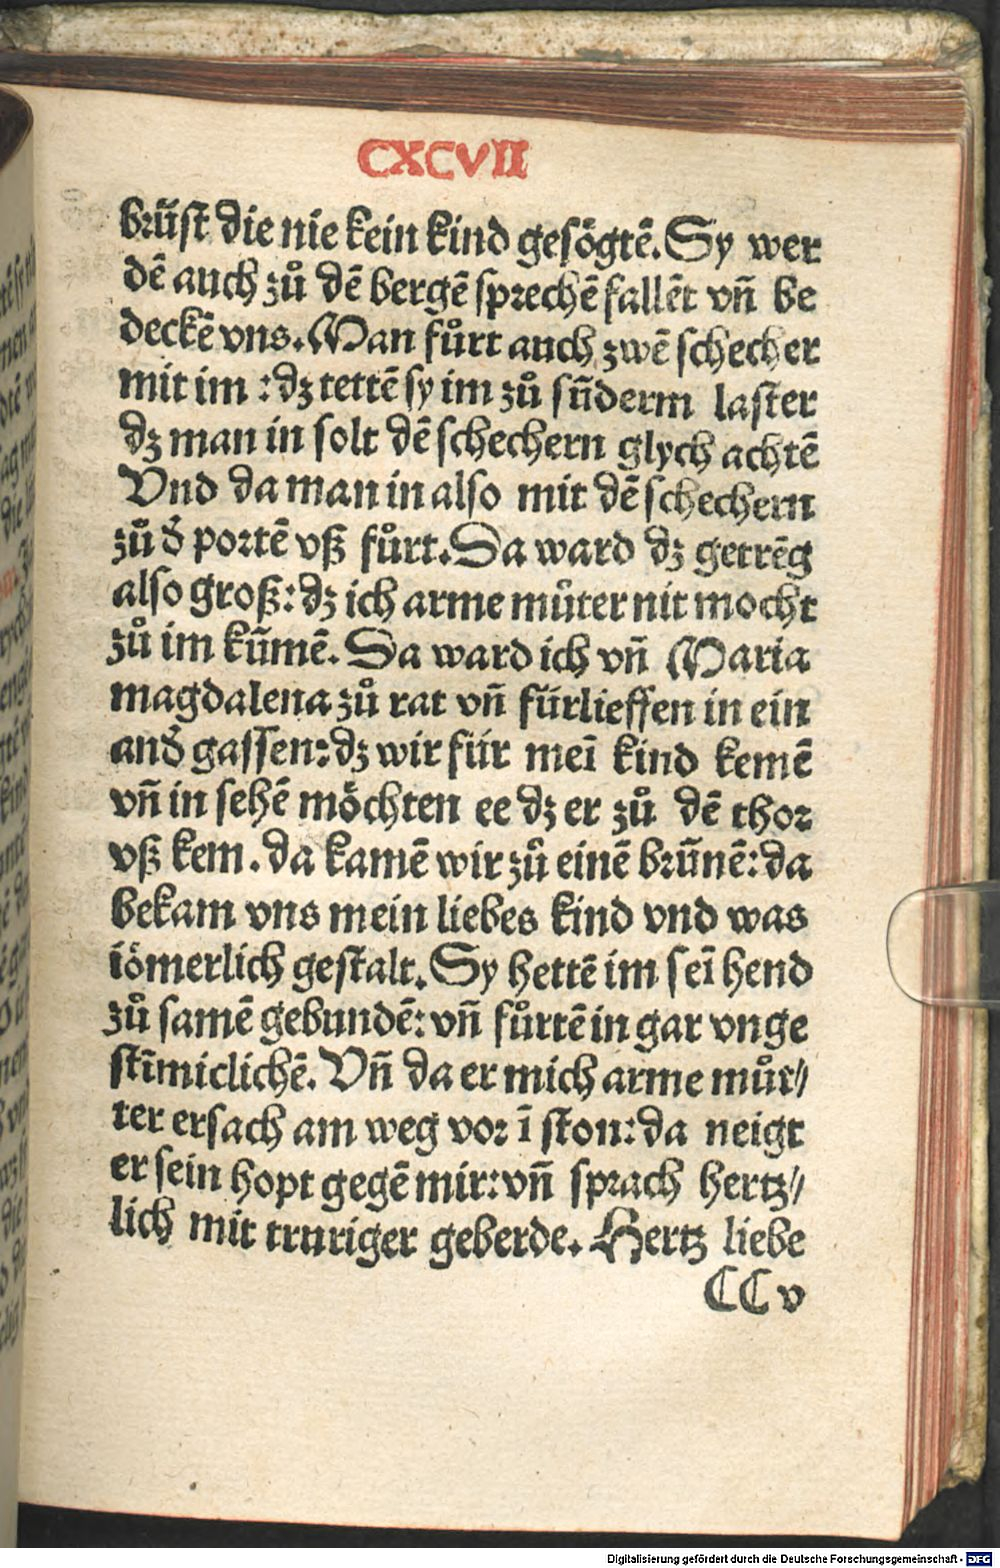 CXCVII
brüst die nie kein kind gesögtē. Sy wer
dē auch zů dē bergē sprechē fallēt vn̄ be
deckē vns. Man fůrt auch zwē schecher
mit im : dz tettē sy im zů sn̄derm laster
dz man in solt dē schechern glych achtē
Vnd da man in also mit dē schechern
zů d̕ portē vß fůrt. Da ward dz getrēg
also groß: dz ich arme můter nit mocht
zů im kūmē. Da ward ich vn̄ Maria
magdalena zů rat vn̄ fürlieffen in ein
and̕ gassen: dz wir für meī kind kemē
vn̄ in sehē möchten ee dz er zů dē thor
vß kem. da kamē wir zů einē brūnē: da
bekam vns mein liebes kind vnd was
iömerlich gestalt. Sy hettē im seī hend
zů samē gebundē: vn̄ fůrtē in gar vnge
stīmiclichē. Vn̄ da er mich arme můt⸗
ter ersach am weg vor ī ston: da neigt
er sein hopt gegē mir: vn̄ sprach hertz⸗
lich mit truriger geberde. Hertz liebe
CC v
Digitalisierung gefördert durch die Deutsche Forschungsgemeinschaft - DFG